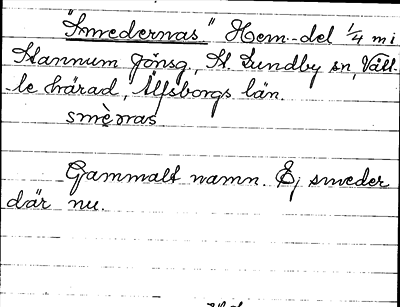 "Smedernas" Hem.-del 1/4 mi
Hannum Jönsg., St. Lundby sn, Vätt-
le härad, Älfsborgs län.
smèrnas
Gammalt namn. Ej smeder
där nu.